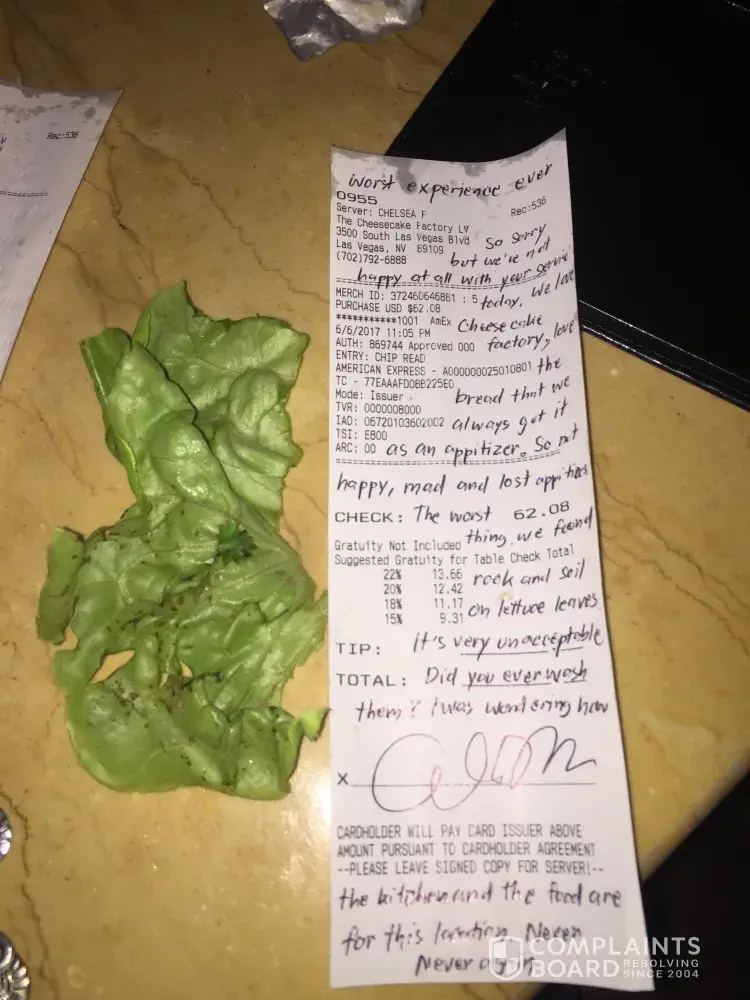 Rec:536
worst experience ever
0955
Rec:536
Server: CHELSEA F
The Cheesecake Factory LV
3500 South Las Vegas Blvd So sorry
Las Vegas, NV 89109 but we're not
(702)792-6888
happy at all with your service
MERCH ID: 372460646881 : 5 today. We love
PURCHASE USD $62.08
***********1001 AmEx Cheese cake
6/6/2017 11:05 PM factory, love
AUTH: 869744 Approved 000
ENTRY: CHIP READ
AMERICAN EXPRESS - A000000025010801 the
TC - 77EAAAFD08B225E0
Mode: Issuer bread that we
TVR: 0000008000
IAD: 06720103602002 always get it
TSI: E800
ARC: 00 as an appitizer. So not
happy, mad and lost appitizer
CHECK: The worst 62.08
Gratuity Not Included thing, we found
Suggested Gratuity for Table Check Total
22% 13.66 rock and soil
20% 12.42
18% 11.17 on lettuce leaves
15% 9.31
TIP: It's very unacceptable
TOTAL: Did you ever wash
them? I was wondering how
X
CARDHOLDER WILL PAY CARD ISSUER ABOVE
AMOUNT PURSUANT TO CARDHOLDER AGREEMENT
--PLEASE LEAVE SIGNED COPY FOR SERVER!--
the kitchen and the food are
for this location. Never
Never again
COMPLAINTS
BOARD RESOLVING SINCE 2004